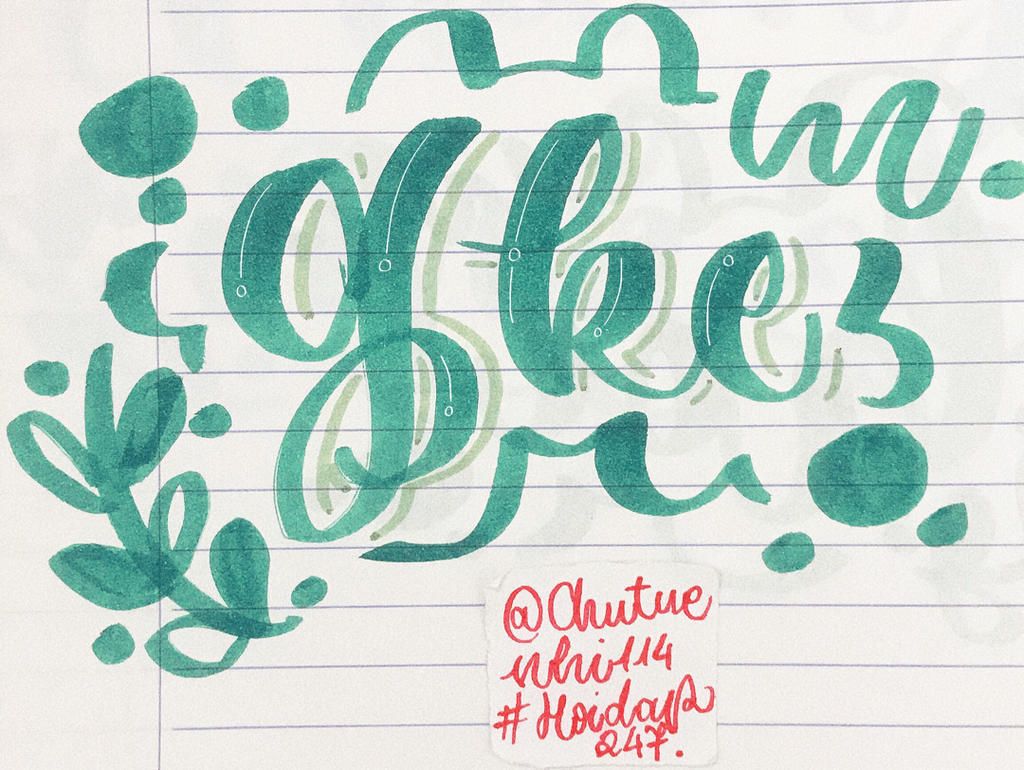 gke
@Chutue
nhi114
#Hoidap
247.